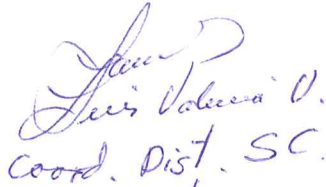 Luis Valencia V.
Coord. Dist. SC.